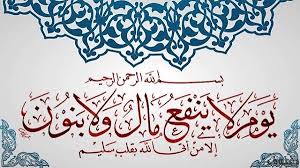 بسم الله الرحمن الرحيم
يوم لا ينفع مال ولا بنون
إلا من أتى الله بقلب سليم